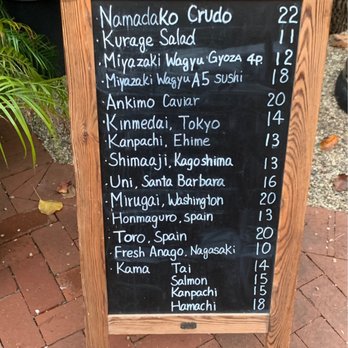 Namadako Crudo 22
· Kurage Salad 11
· Miyazaki Wagyu Gyoza 4p. 12
· Miyazaki Wagyu A5 sushi 18
· Ankimo Caviar 20
· Kinmedai, Tokyo 14
· Kanpachi, Ehime 13
· Shimaaji, Kagoshima 13
· Uni, Santa Barbara 16
· Mirugai, Washington 20
· Honmaguro, spain 13
· Toro, Spain 20
· Fresh Anago, Nagasaki 10
· Kama Tai 14
Salmon 15
Kanpachi 15
Hamachi 18